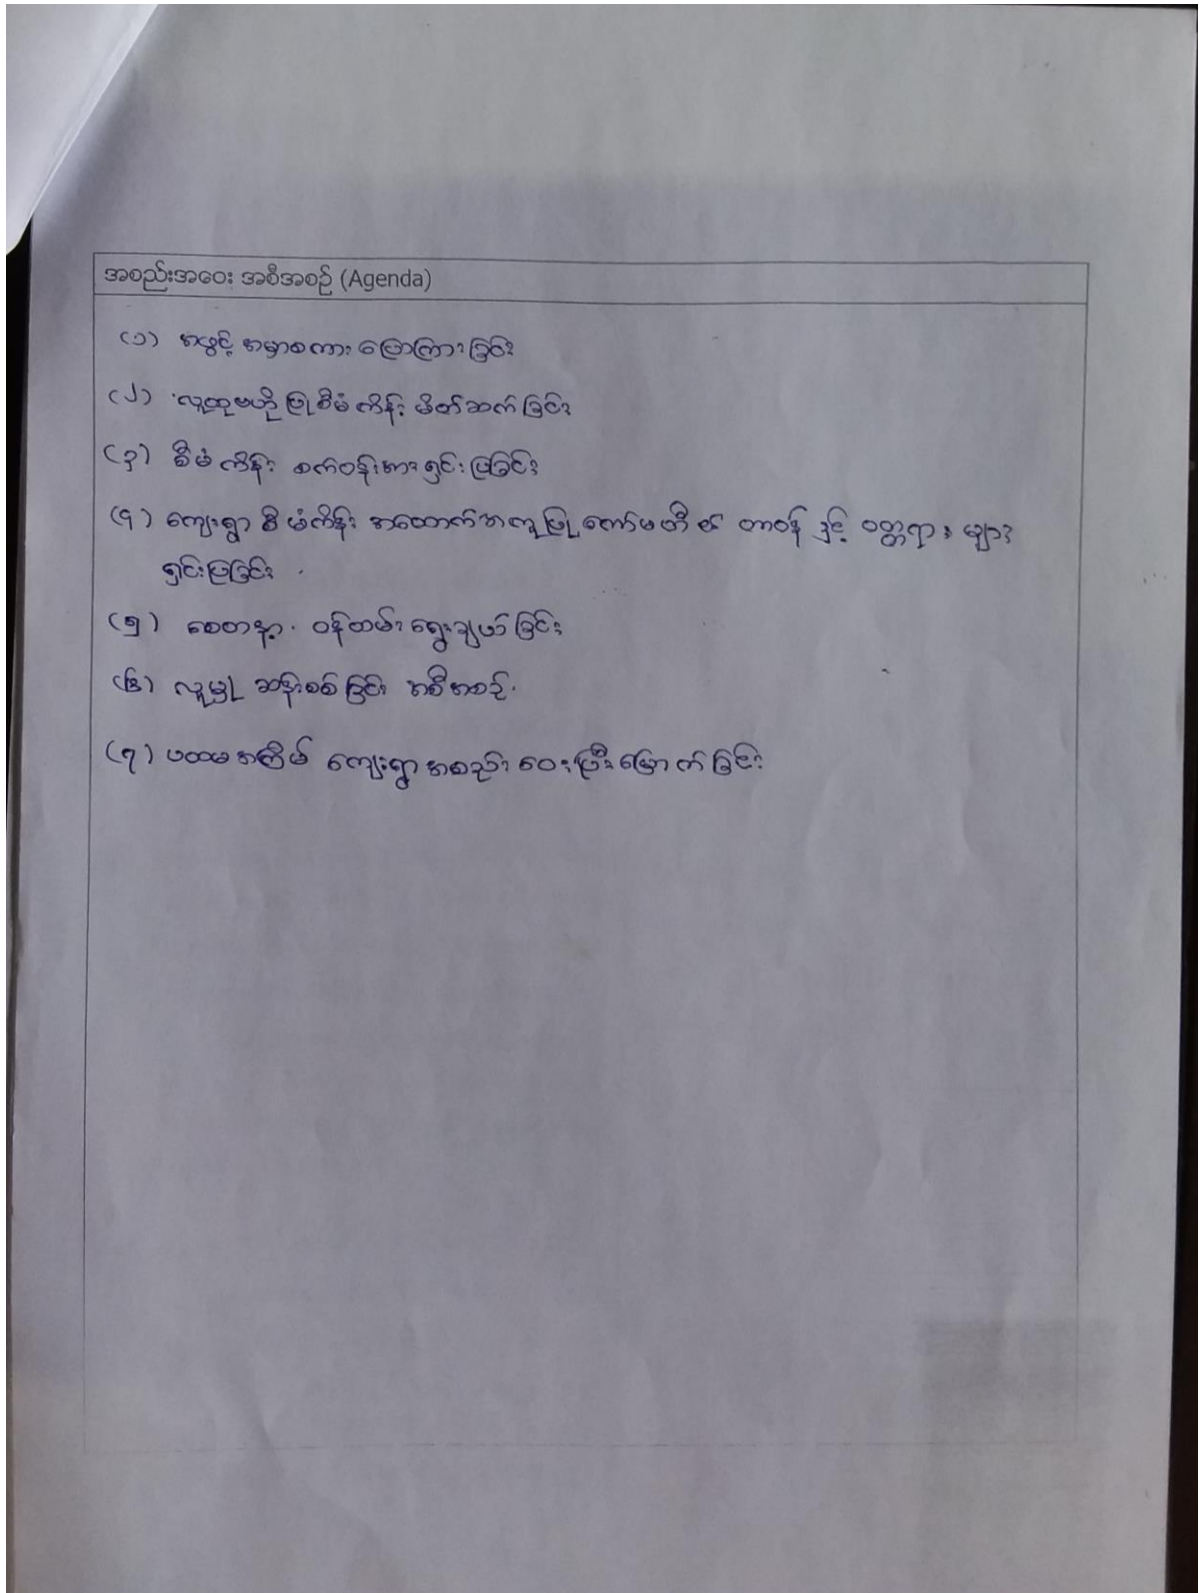 အစည်းအဝေး အစီအစဉ် (Agenda)
(၁) အဖွင့် အမှာစကား ပြောကြားခြင်း
(၂) လူထုဗဟိုပြုစီမံကိန်း မိတ်ဆက်ခြင်း
(၃) စီမံကိန်း စက်ဝန်းအားရှင်းပြခြင်း
(၄) ကျေးရွာစီမံကိန်း အထောက်အကူပြုကော်မတီ၏ တာဝန် နှင့် ဝတ္တရားများ
ရှင်းပြခြင်း
(၅) စေတနာ့ ဝန်ထမ်းရွေးချယ်ခြင်း
(၆) လူမှု ဆန်းစစ်ခြင်း အစီအစဉ်
(၇) ပထမအကြိမ် ကျေးရွာအစည်းဝေးပြီးမြောက်ခြင်း